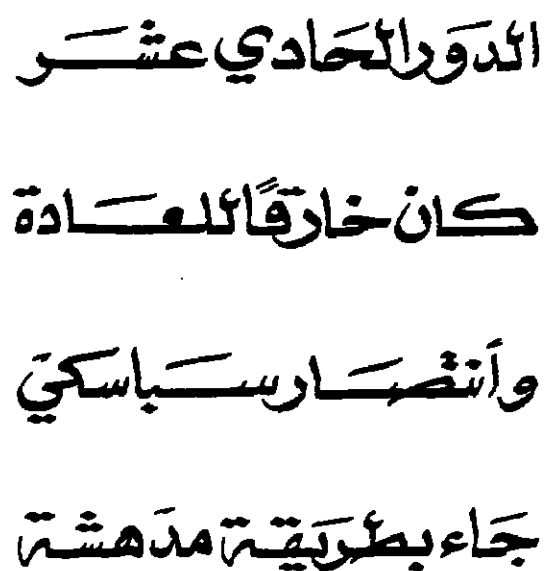 الدَور الحَادي عشَر
كان خارقًا للعَادة
وأنتصَار سبَاسكيَ
جَاء بطَريَقية مدَهشة